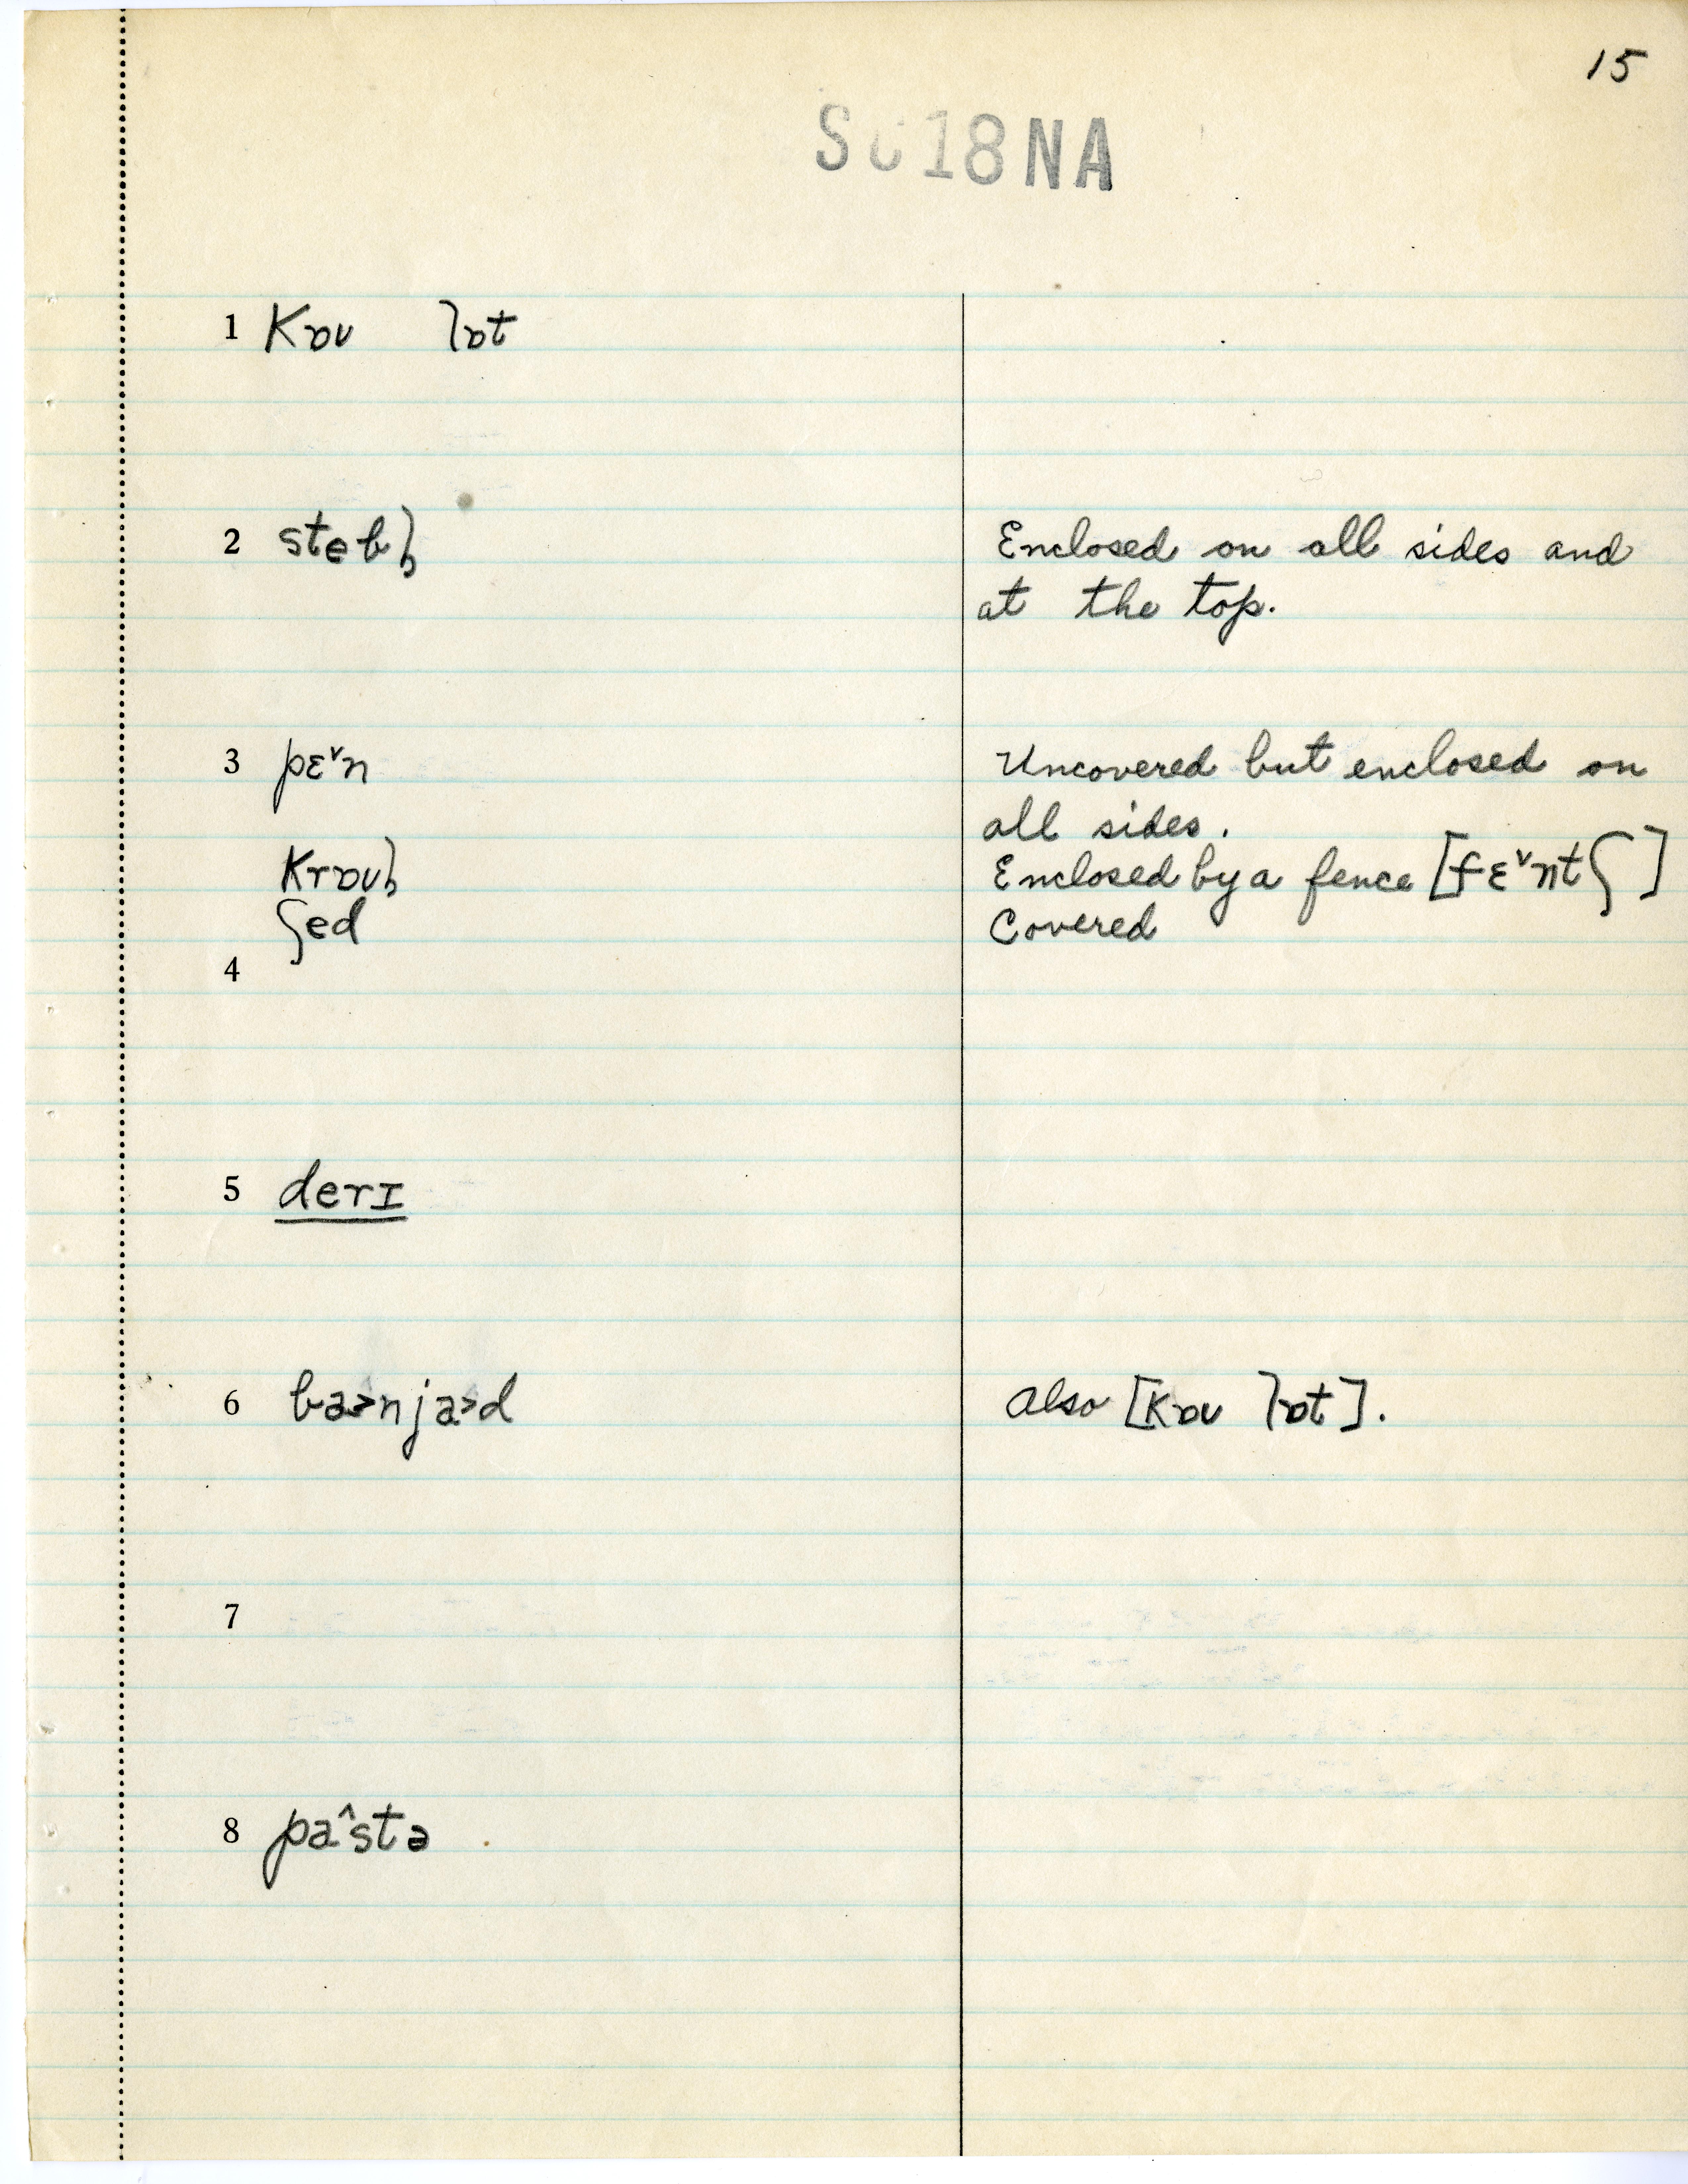 15
SC18NA
1 kɒʋ lɒt
2 stebl̩ Enclosed on all sides and
at the top.
3 pɛ˅n Uncovered but enclosed on
all sides.
krɒʋl̩ Enclosed by a fence [fɛ˅ntʃ]
ʃed Covered
4
5 derɪ
6 ba>nja>d Also [kɒʋ lɒt].
7
8 pa^stə